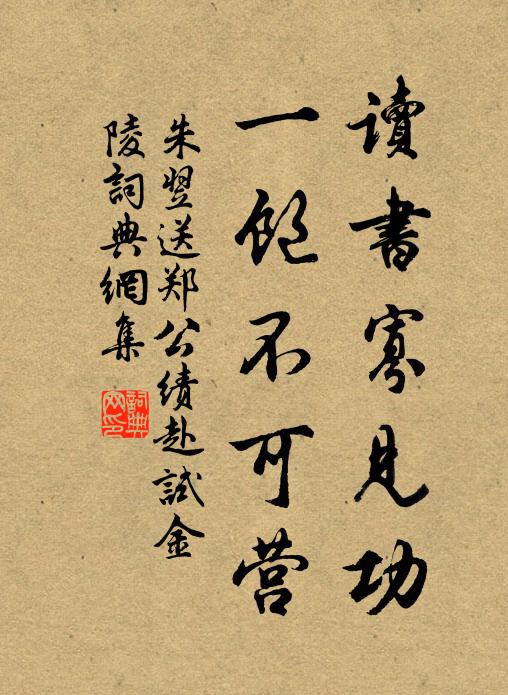 讀書寡見功
一飽不可营
朱翌送郑公績赴試金
陵詞典網集
詞典网印